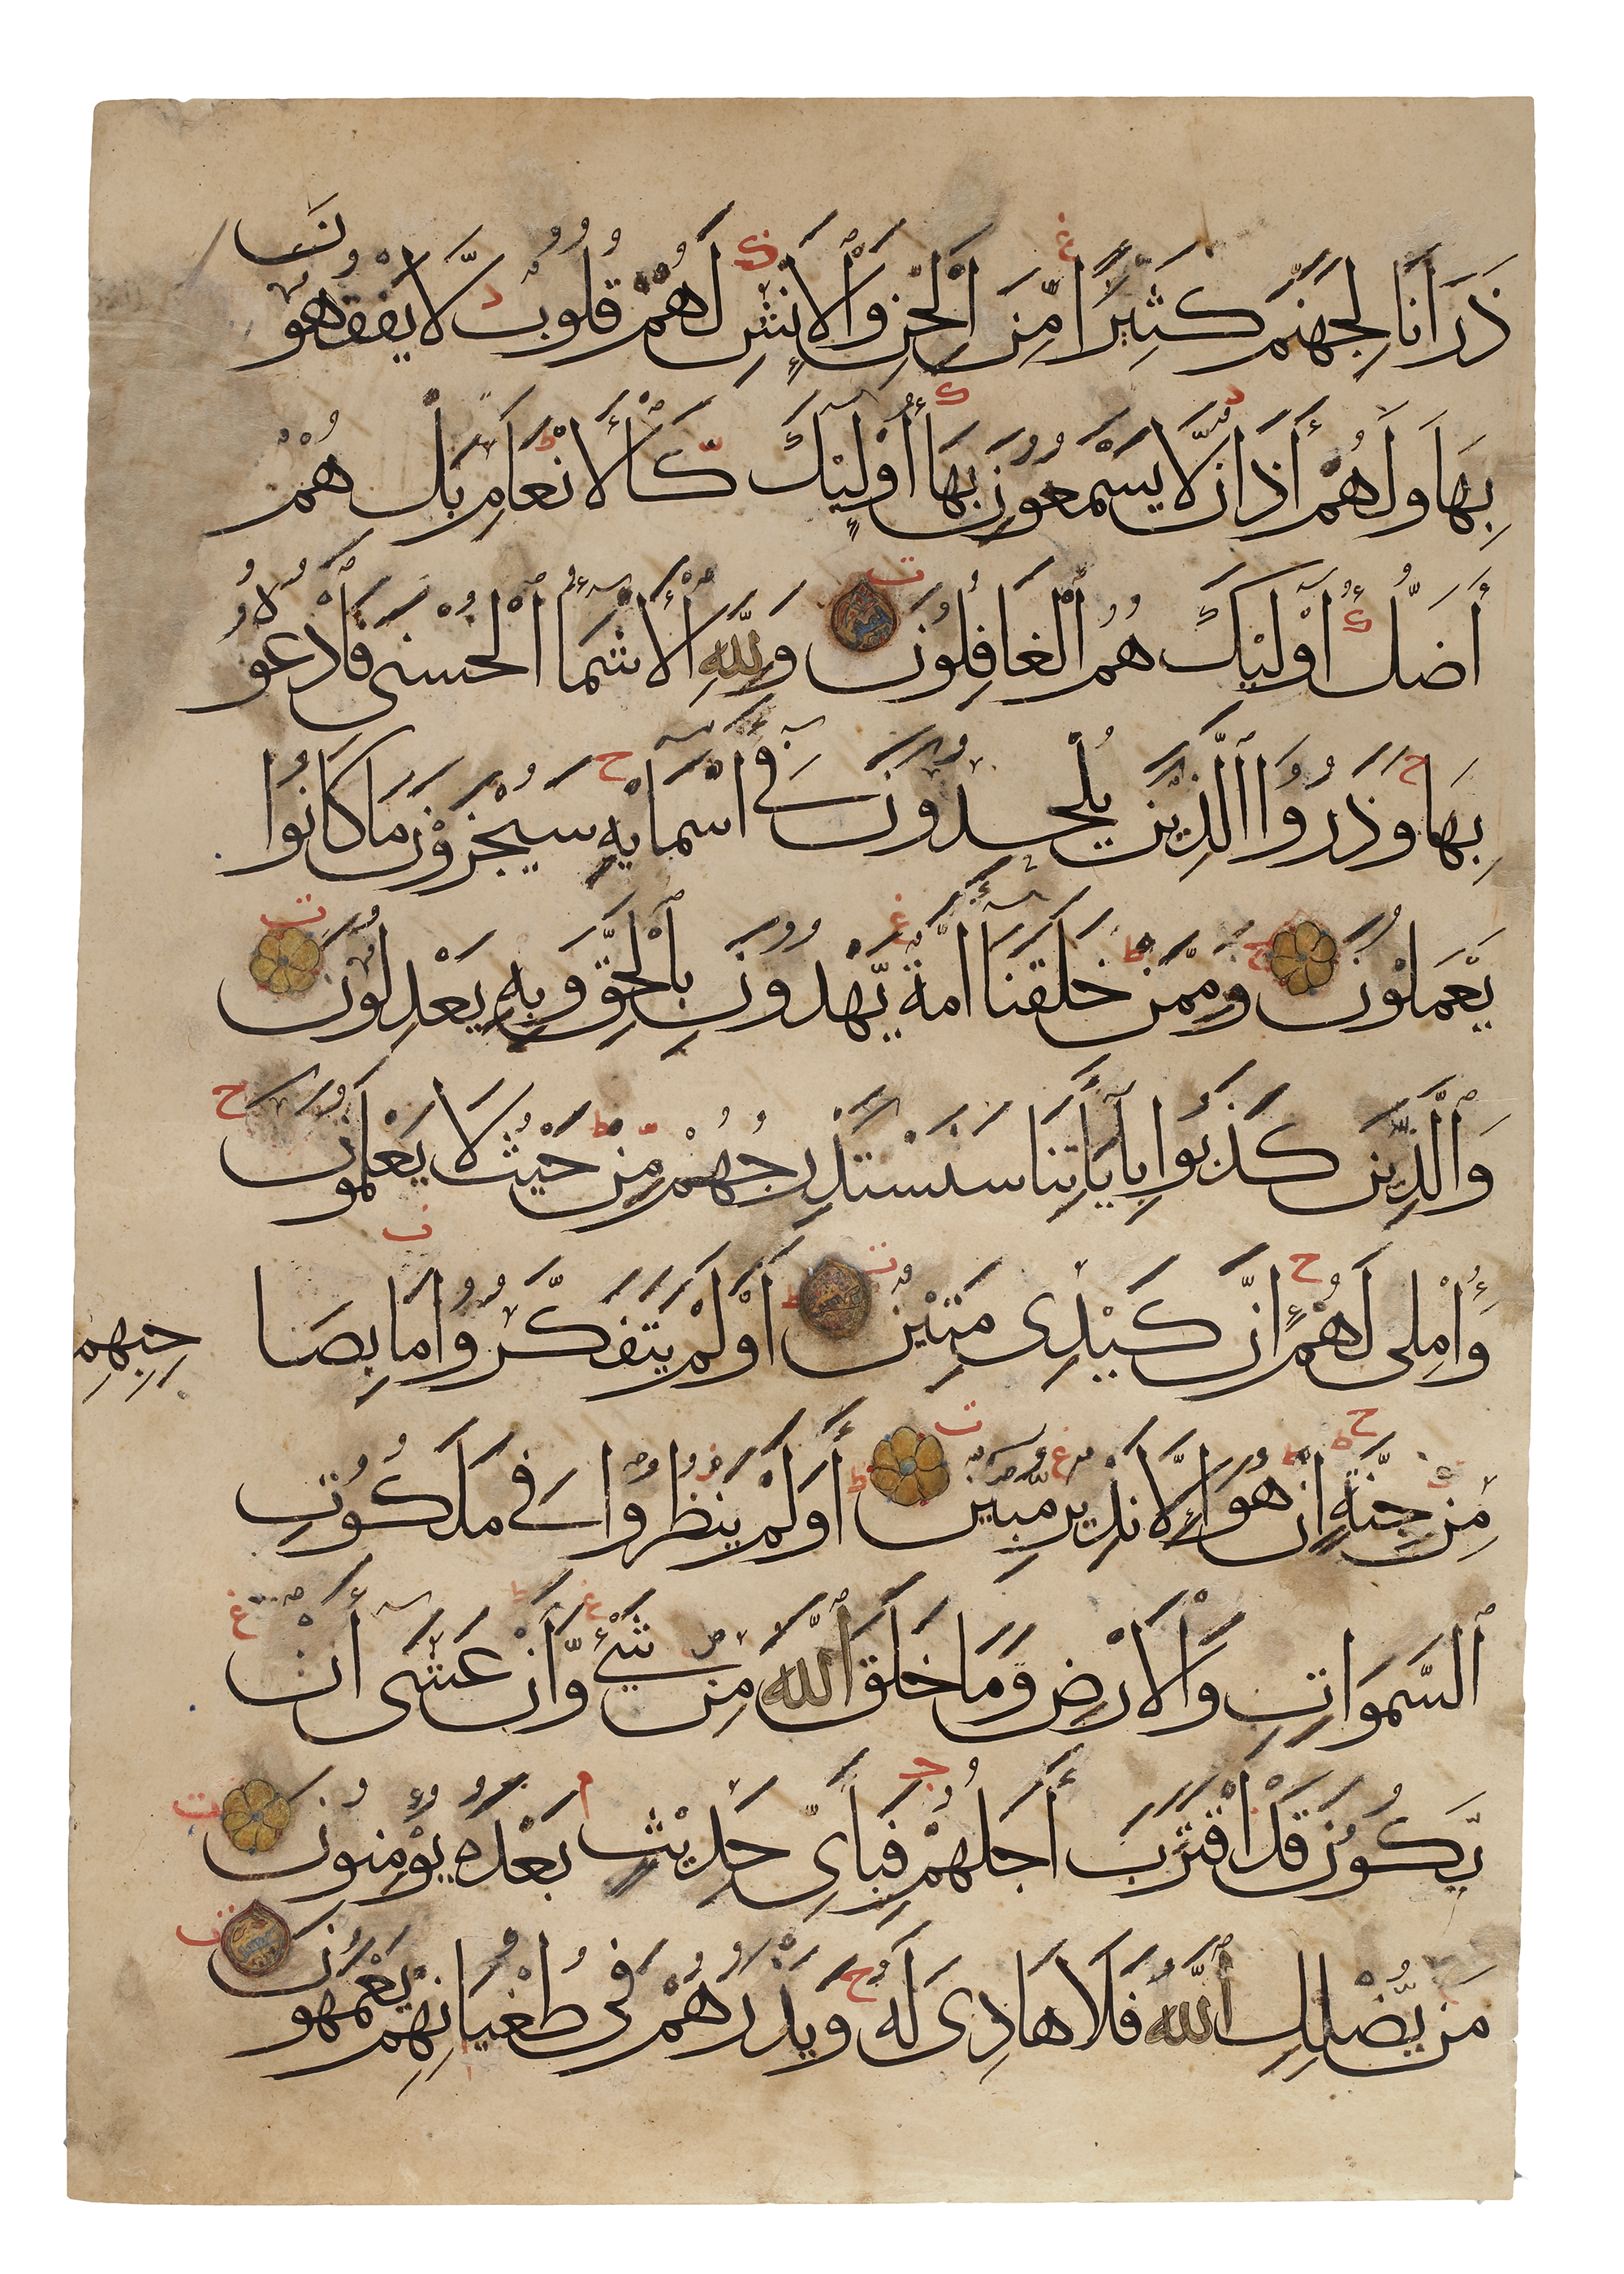 ذَرَانَا لِجَهَنَّمَ كَثِيرًا مِّنَ الْجِنِّ وَالْإِنْسِ لَهُمْ قُلُوبٌ لَّا يَفْقَهُونَ
بِهَا وَلَهُمْ أَذَانٌ لَّا يَسْمَعُونَ بِهَا أُوْلَئِكَ كَالْأَنْعَامِ بَلْ هُمْ
أَضَلُّ أُوْلَئِكَ هُمُ الْغَافِلُونَ وَلِلَّهِ الْأَسْمَاءُ الْحُسْنَى فَادْعُوهُ
بِهَا وَذَرُوا الَّذِينَ يُلْحِدُونَ فِي أَسْمَائِهِ سَيُجْزَوْنَ مَا كَانُوا
يَعْمَلُونَ وَمِمَّنْ خَلَقْنَا أُمَّةٌ يَهْدُونَ بِالْحَقِّ وَبِهِ يَعْدِلُونَ
وَالَّذِينَ كَذَّبُوا بِأَيَاتِنَا سَنَسْتَدْرِجُهُمْ مِّنْ حَيْثُ لَا يَعْلَمُونَ
وَأُمْلِي لَهُمْ إِنَّ كَيْدِي مَتِينٌ أَوَلَمْ يَتَفَكَّرُوا مَا بِصَا حِبِهِمْ
مِّنْ جِنَّةٍ إِنْ هُوَ إِلَّا نَذِيرٌ مُّبِينٌ أَوَلَمْ يَنْظُرُوا فِي مَلَكُوتِ
السَّمَوَاتِ وَالْأَرْضِ وَمَا خَلَقَ اللَّهُ مِنْ شَيْءٍ وَّأَنْ عَسَى أَنْ
يَّكُونَ قَدِ اقْتَرَبَ أَجَلُهُمْ فَبِأَيِّ حَدِيثٍ بَعْدَهُ يُؤْمِنُونَ
مَنْ يُّضْلِلِ اللَّهُ فَلَا هَادِيَ لَهُ وَيَذَرُهُمْ فِي طُغْيَانِهِمْ يَعْمَهُونَ